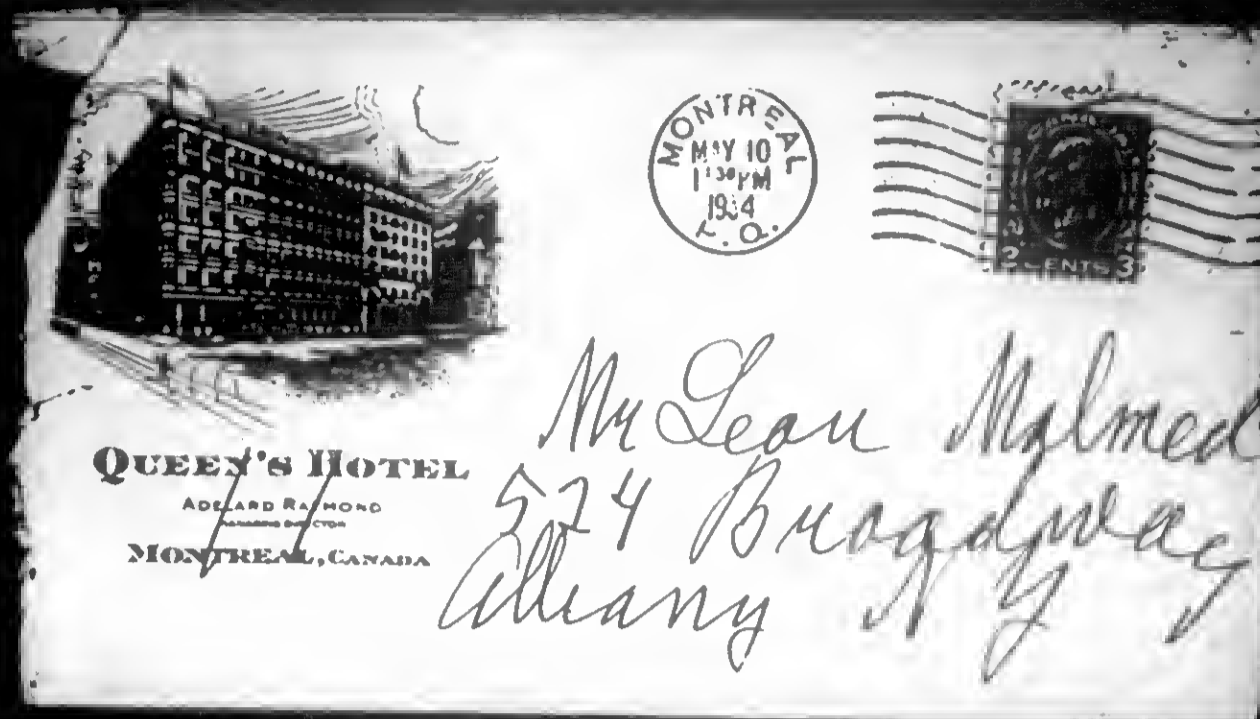 MONTREAL
MAY 10
1:30 PM
1934
P.Q.
CANADA
3 CENTS 3
QUEEN'S HOTEL
ADELARD RAYMOND
MANAGING DIRECTOR
MONTREAL, CANADA
Mr Leon Malmed
574 Broadway
Albany N Y